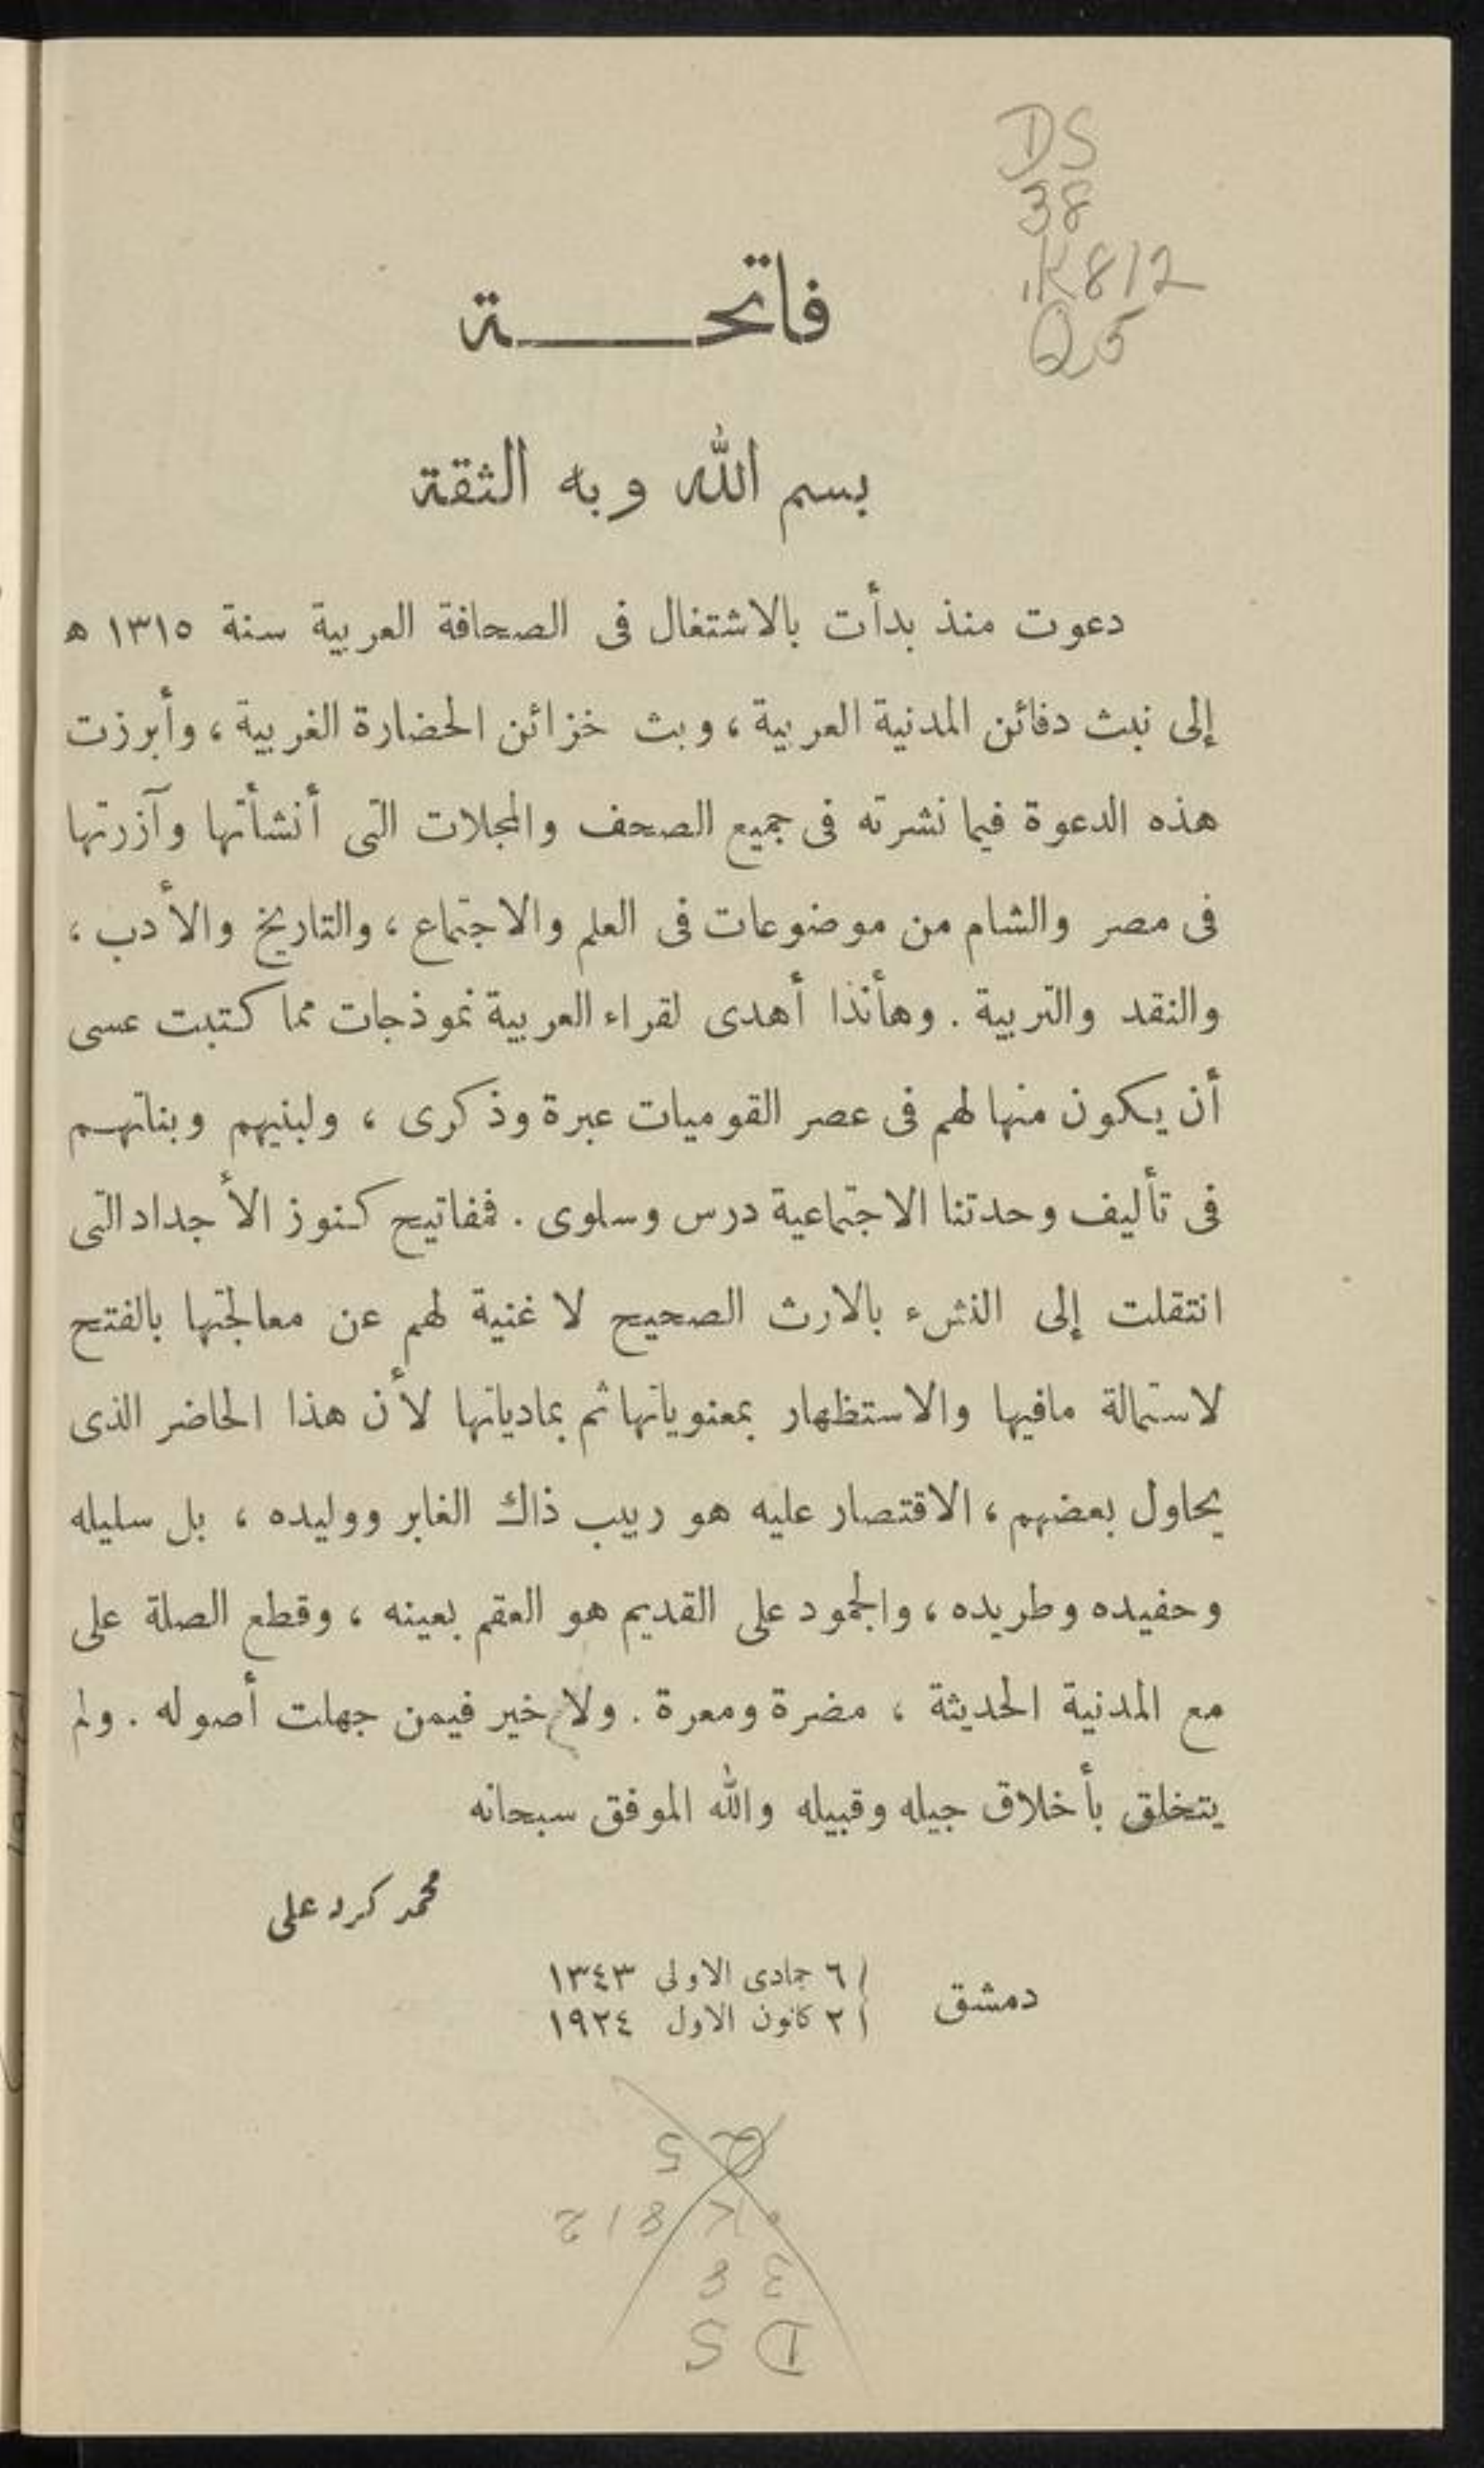 DS
38
.K812
Q5
فاتحـــــة
بسم الله وبه الثقة
دعوت منذ بدأت بالاشتغال فى الصحافة العربية سنة ١٣١٥ ه
إلى نبث دفائن المدنية العربية ، وبث خزائن الحضارة الغربية ، وأبرزت
هذه الدعوة فيما نشرته فى جميع الصحف والمجلات التى أنشأتها وآزرتها
فى مصر والشام من موضوعات فى العلم والاجتماع ، والتاريخ والأدب ،
والنقد والتربية . وهأنذا أهدى لقراء العربية نموذجات مما كتبت عسى
أن يكون منها لهم فى عصر القوميات عبرة وذكرى ، ولبنيهم وبناتهم
فى تأليف وحدتنا الاجتماعية درس وسلوى . فمفاتيح كنوز الأجداد التى
انتقلت إلى النشء بالارث الصحيح لا غنية لهم عن معالجتها بالفتح
لاستمالة مافيها والاستظهار بمعنوياتها ثم بمادياتها لأن هذا الحاضر الذى
يحاول بعضهم ، الاقتصار عليه هو ربيب ذاك الغابر ووليده ، بل سليله
وحفيده وطريده ، والجمود على القديم هو العقم بعينه ، وقطع الصلة على
مع المدنية الحديثة ، مضرة ومعرة . ولا خير فيمن جهلت أصوله . ولم
يتخلق بأخلاق جيله وقبيله والله الموفق سبحانه
محمد كرد على
دمشق
٦ جمادى الاولى ١٣٤٣
٢ كانون الاول ١٩٢٤
DS
38
.K812
Q5